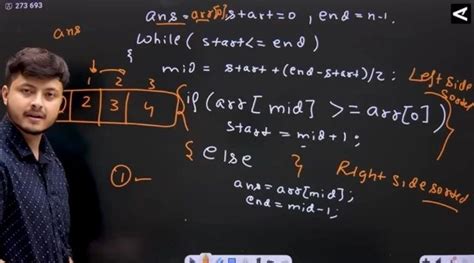 273 693
ans = arr[0], start=0, end=n-1.
ans
while( start<= end)
{
mid = start+(end-start)/2;
Left side
1 2 3
2 3 4
if (arr[mid] >= arr[0])
start = mid+1;
{ else }
Right side sorted
1
ans=arr[mid];
end=mid-1;